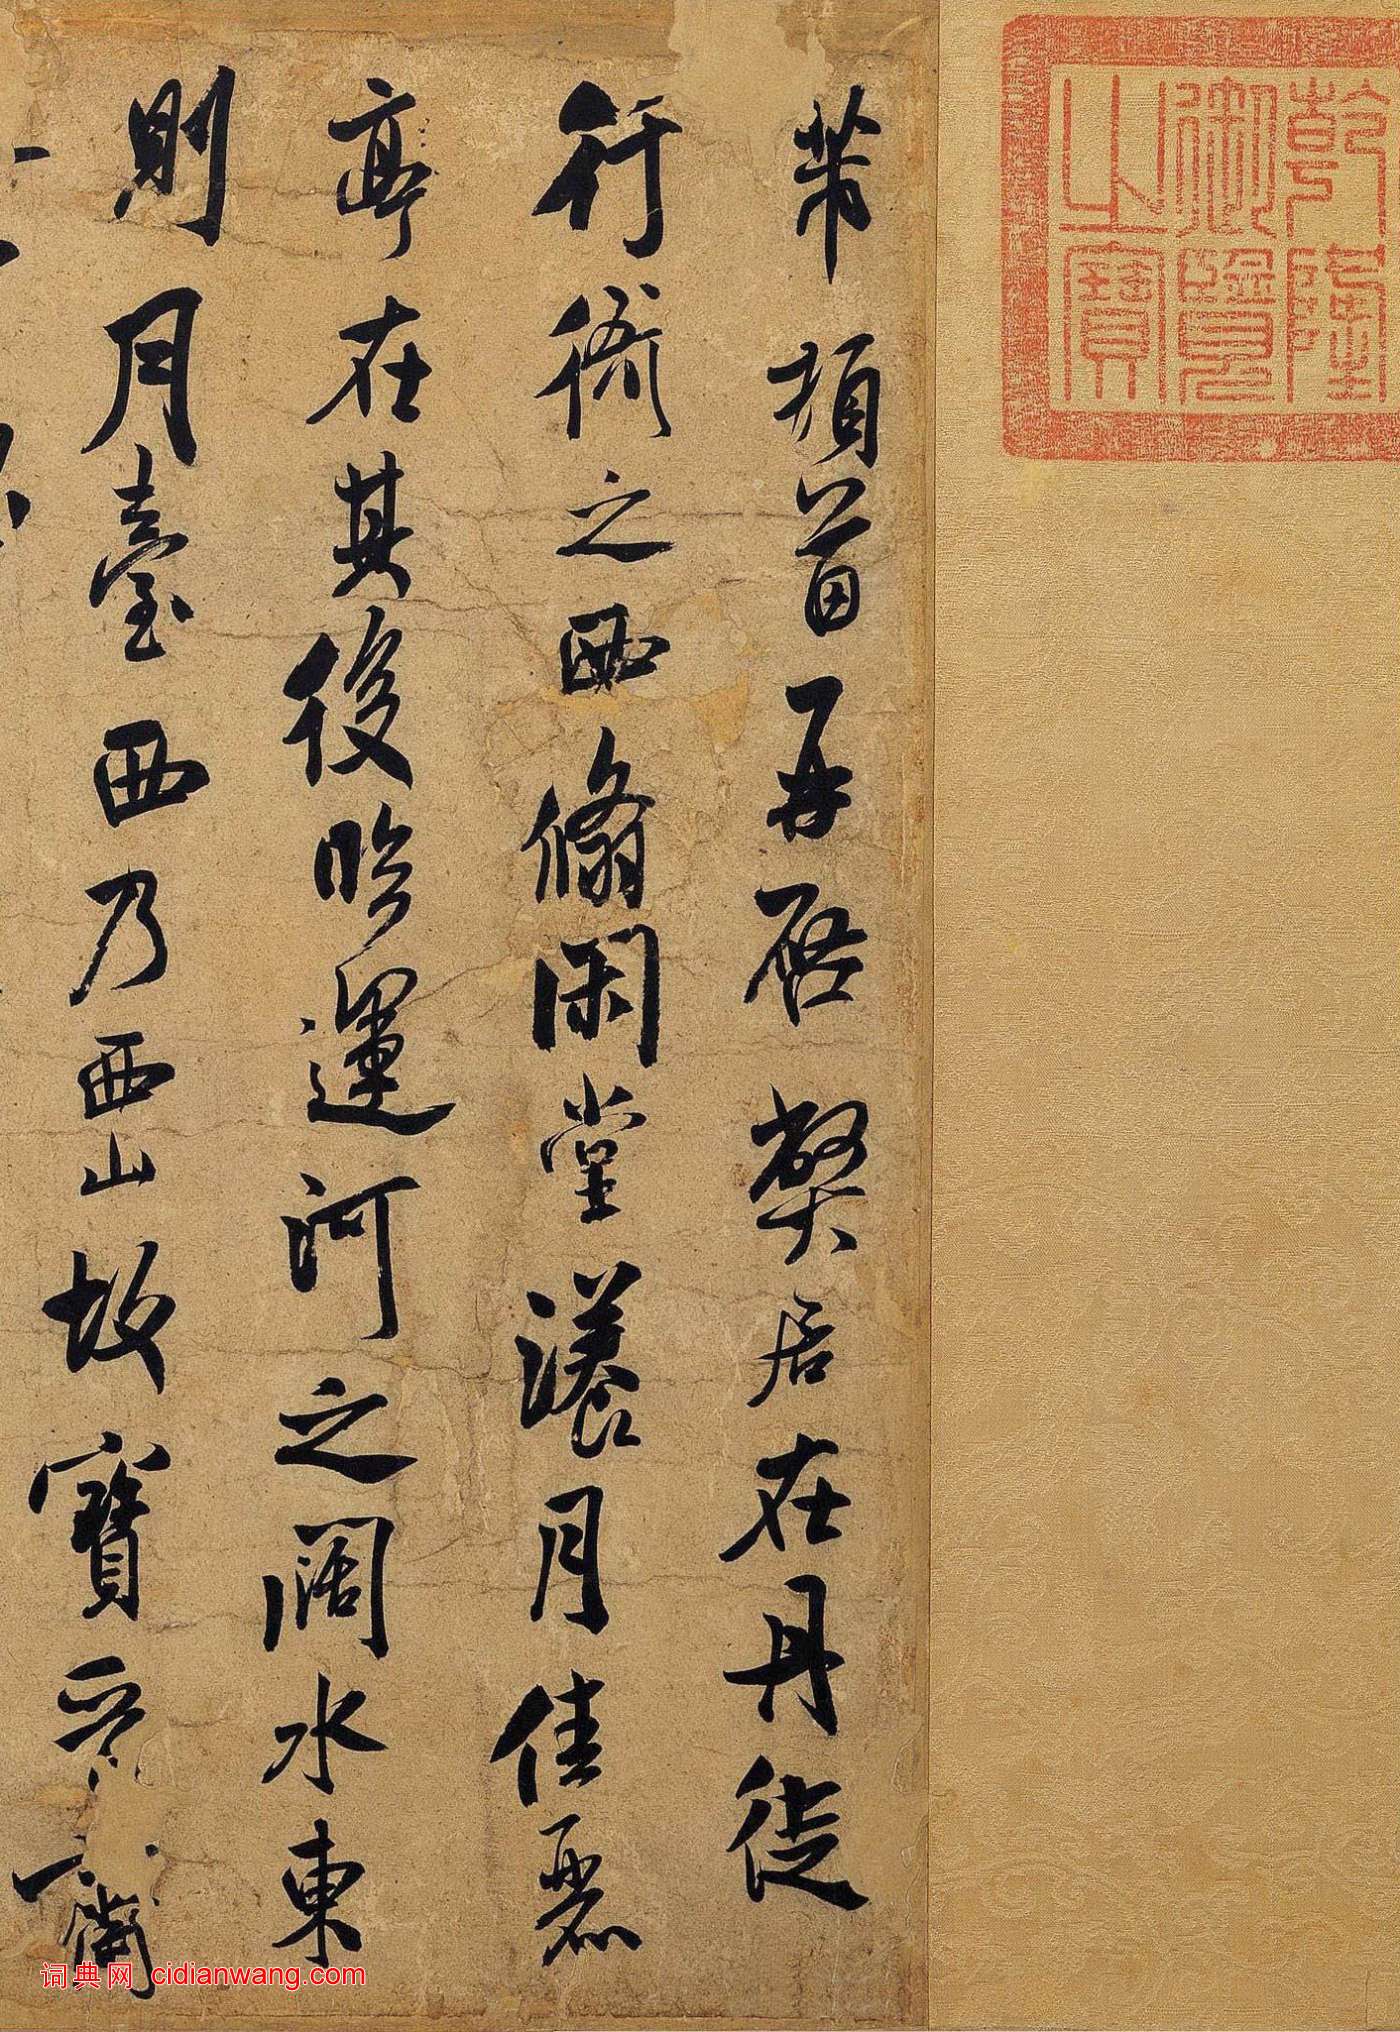 乾隆
御覽
之寶
芾頓首再啓弊居在丹徒
行衙之西翛閑堂漾月佳麗
亭在其後臨運河之闊水東
則月臺西乃西山故寶晉
詞典网 cidianwang.com